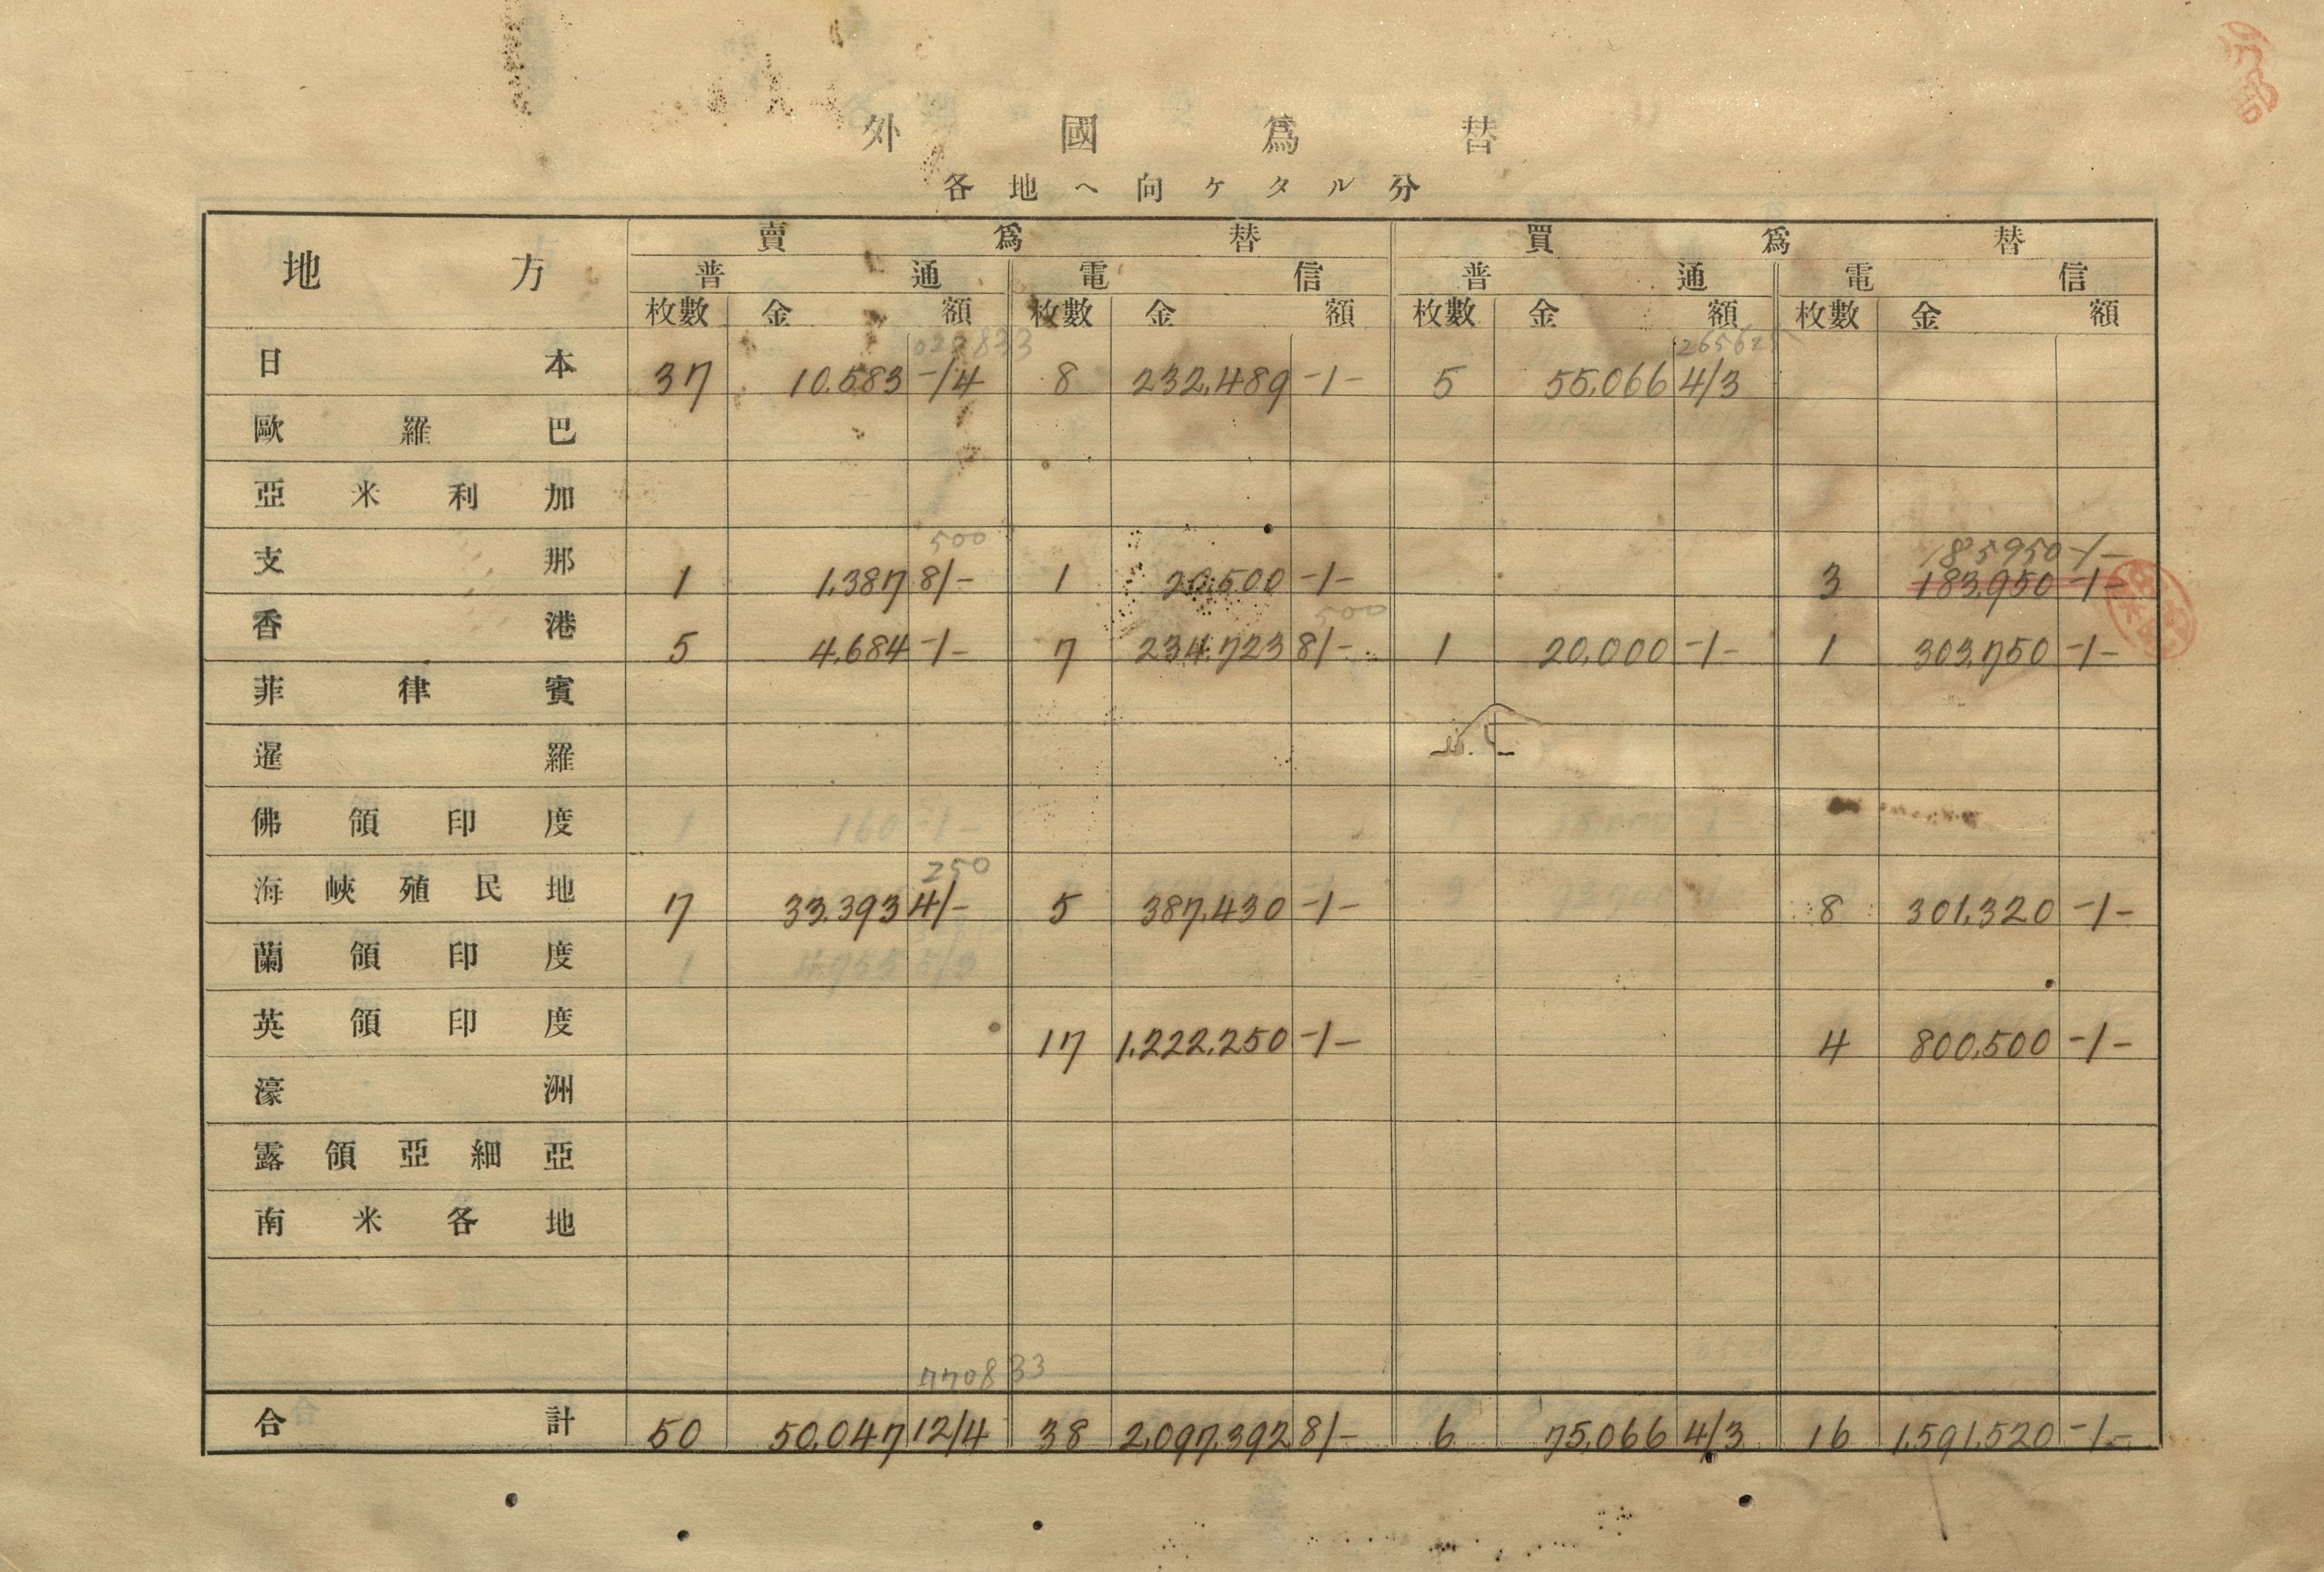 外國爲替
各地ヘ向ケタル分
地方 賣爲替 買爲替
普通 電信 普通 電信
枚數 金額 枚數 金額 枚數 金額 枚數 金額
020833 265625
日本 37 10,583 -/4 8 232,489 -/- 5 55,066 4/3
歐羅巴
亞米利加
500 185950 -/-
支那 1 1,387 8/- 1 20,500 -/- 3 183,950 -/-
500
香港 5 4,684 -/- 7 234,723 8/- 1 20,000 -/- 1 303,750 -/-
菲律賓
暹羅
佛領印度
250
海峽殖民地 7 33,393 4/- 5 387,430 -/- 8 301,320 -/-
蘭領印度
英領印度 17 1,222,250 -/- 4 800,500 -/-
濠洲
露領亞細亞
南米各地
770833
合計 50 50,047 12/4 38 2,097,392 8/- 6 75,066 4/3 16 1,591,520 -/-